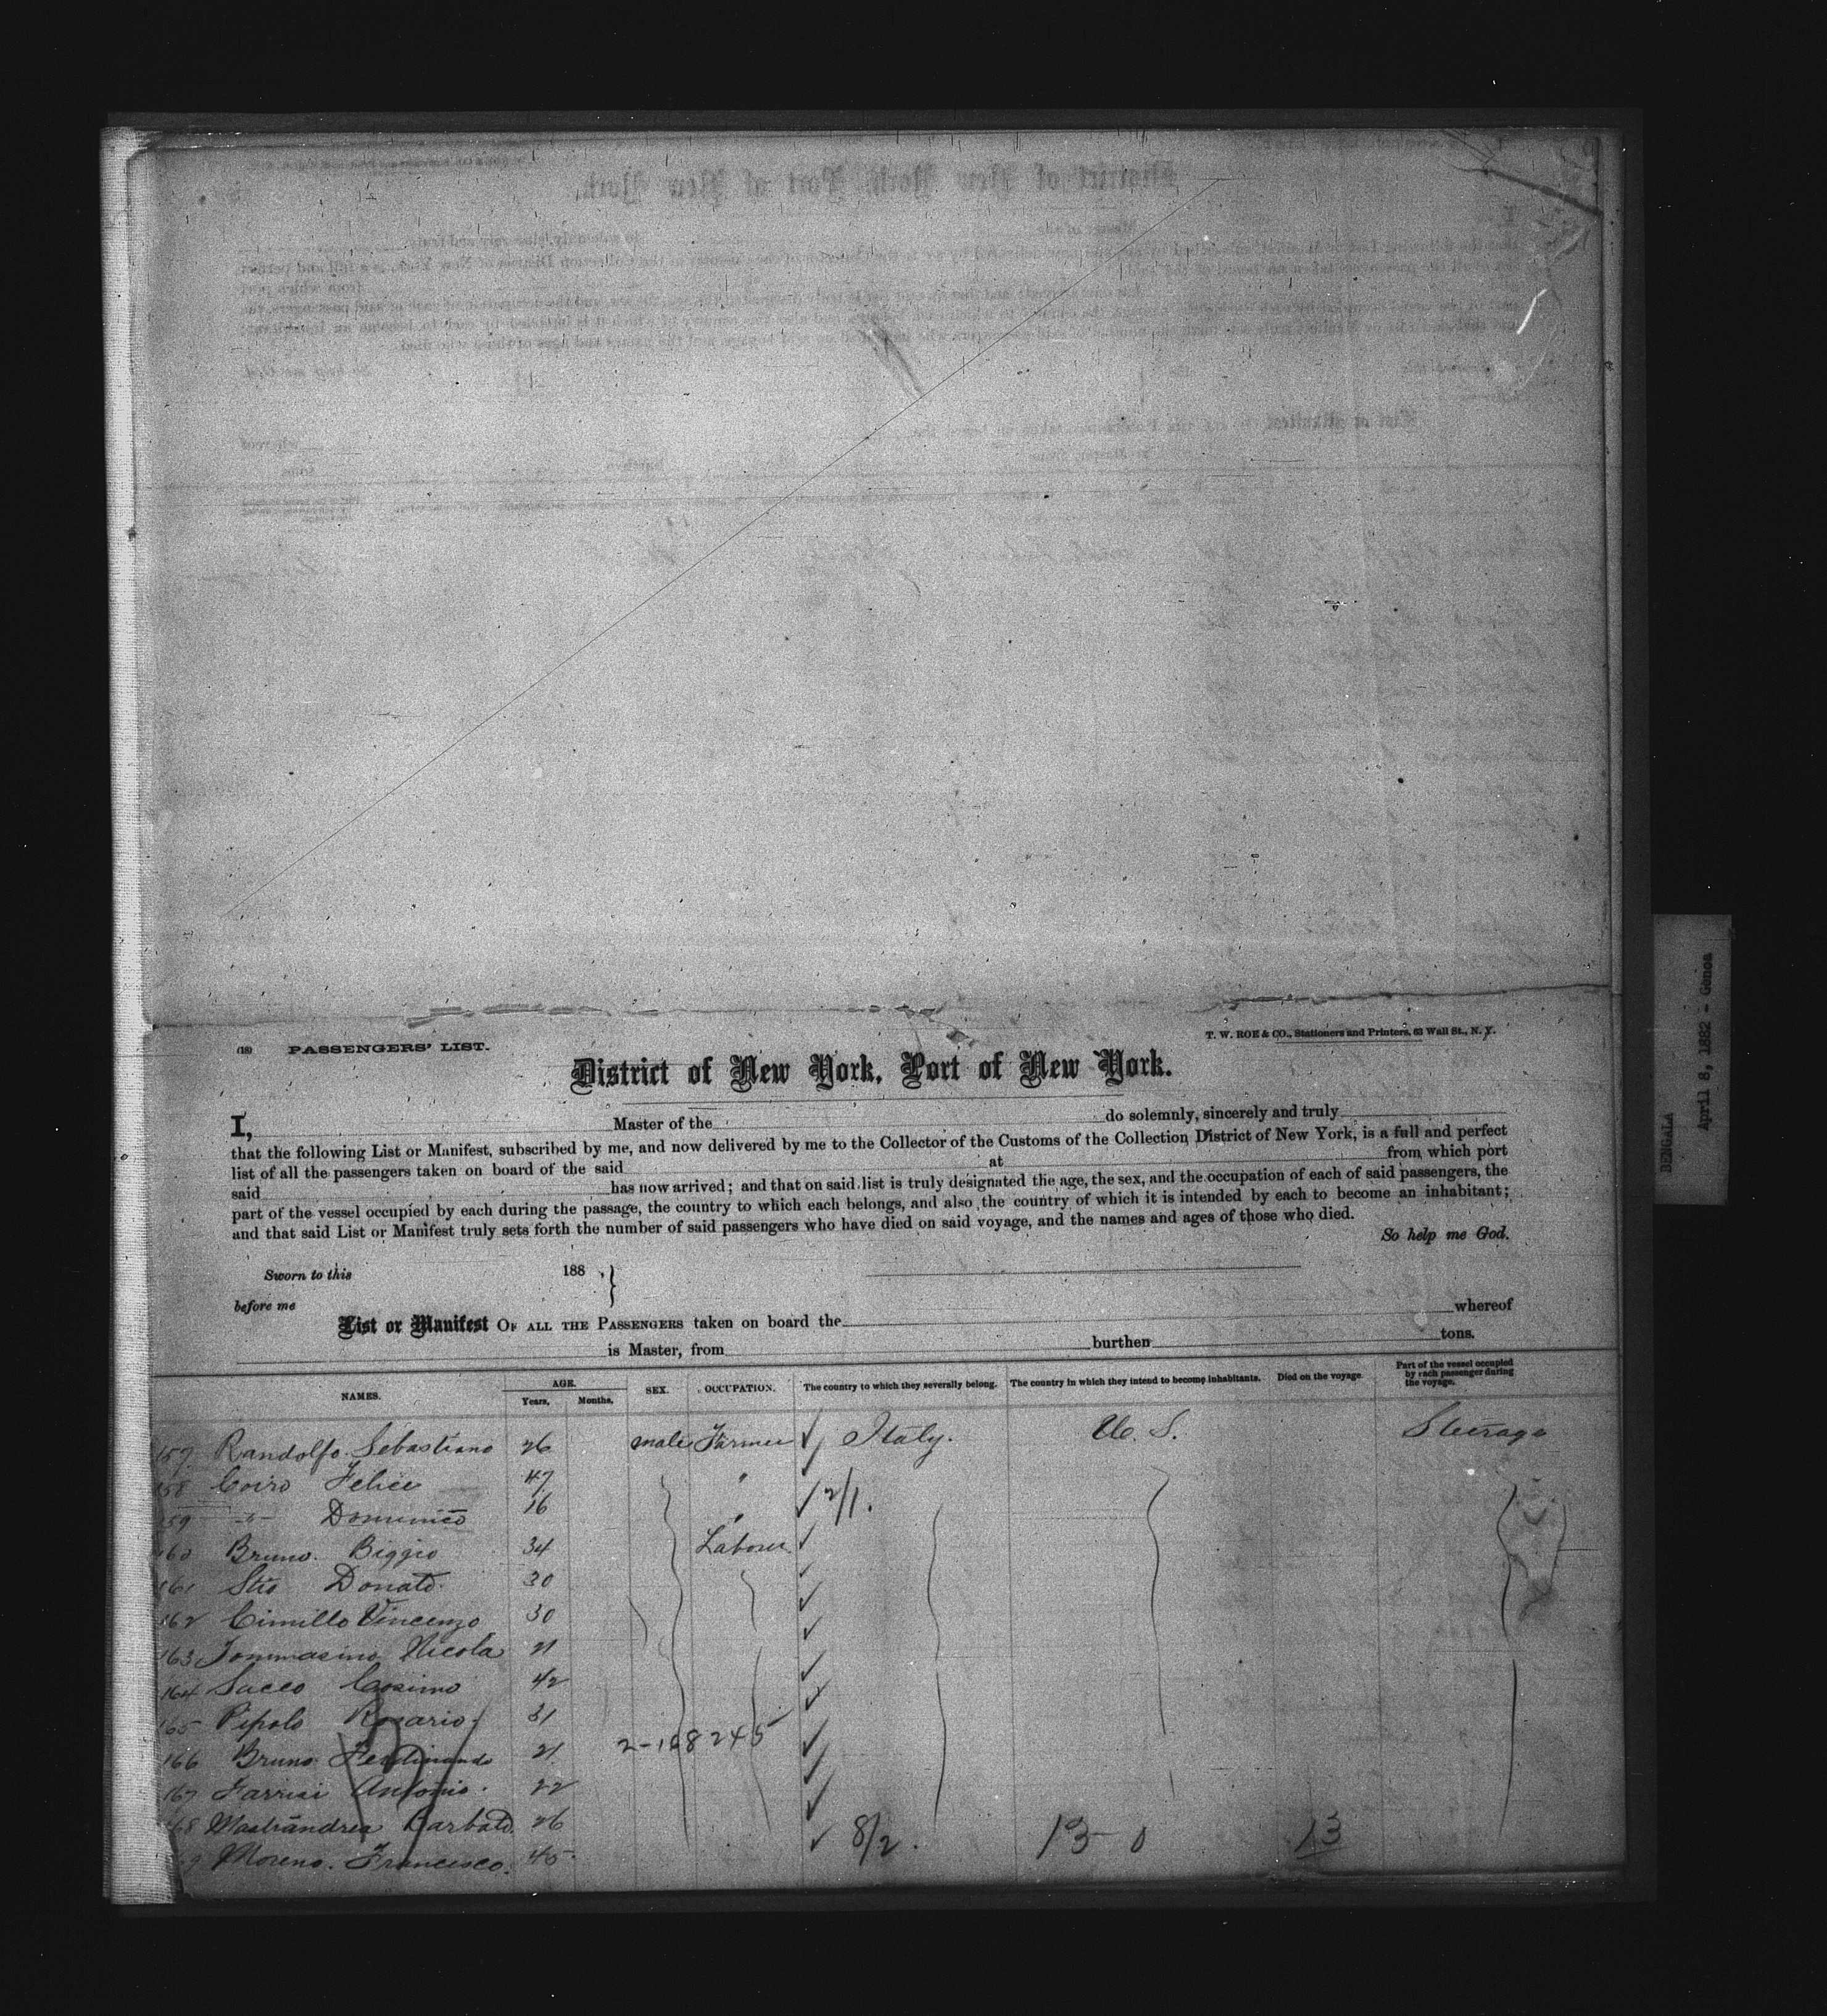 (18) PASSENGERS' LIST.
T. W. ROE & CO., Stationers and Printers, 63 Wall St., N. Y.
District of New York, Port of New York.
I, Master of the do solemnly, sincerely and truly
that the following List or Manifest, subscribed by me, and now delivered by me to the Collector of the Customs of the Collection District of New York, is a full and perfect
list of all the passengers taken on board of the said at from which port
said has now arrived; and that on said list is truly designated the age, the sex, and the occupation of each of said passengers, the
part of the vessel occupied by each during the passage, the country to which each belongs, and also the country of which it is intended by each to become an inhabitant;
and that said List or Manifest truly sets forth the number of said passengers who have died on said voyage, and the names and ages of those who died.
So help me God.
Sworn to this 188 , }
before me
List or Manifest OF ALL THE PASSENGERS taken on board the whereof
is Master, from burthen tons.
NAMES. AGE. Years, Months, SEX. OCCUPATION. The country to which they severally belong. The country in which they intend to become inhabitants. Died on the voyage Part of the vessel occupied by each passenger during the voyage.
157 Randolfo Sebastiano 26 male Farmer ✓ Italy. U. S. Steerage
158 Coiro Felice 47 " ✓ 2/1.
159 -"- Domenico 16 "
160 Bruno Biggio 34 Laborer ✓
161 Stio Donato 30 ✓
162 Cimillo Vincenzo 30 ✓
163 Tommasino Nicola 21 ✓
164 Sacco Cosimo 42 ✓
165 Pipolo Rosario 31 ✓
2-168245
166 Bruno Ferdinando 21 ✓
167 Farrisi Antonio 22 ✓
168 Mastrandrea Barbato 26 ✓
169 Moreno Francesco 45 ✓ 8/2. 13 0 13
BENGALA
April 8, 1882 - Genoa